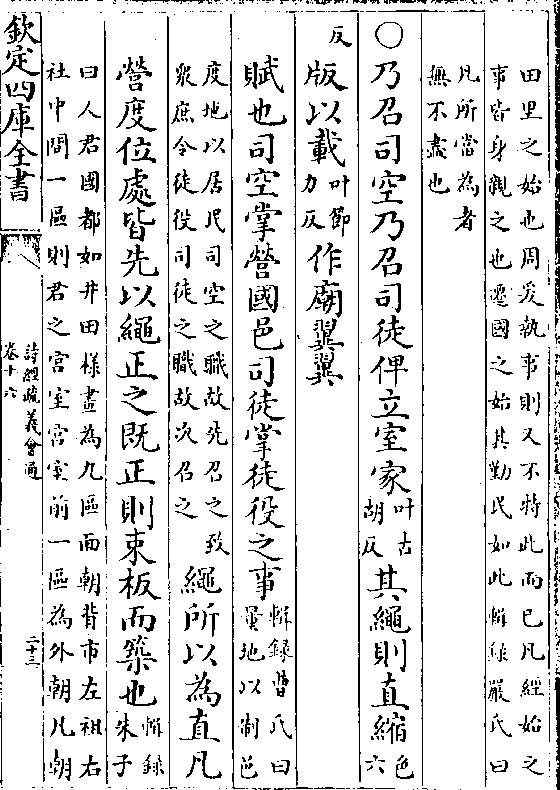 田里之始也周爰執事則又不特此而已凡經始之
事皆身親之也遷國之始其勤民如此輯録嚴氏曰
凡所當為者
無不盡也
○乃召司空乃召司徒俾立室家叶古胡反其繩則直縮色六
反版以載叶節力反作廟翼翼
賦也司空掌營國邑司徒掌徒役之事輯録曹氏曰量地以制邑
度地以居民司空之職故先召之致
衆庶令徒役司徒之職故次召之繩所以為直凡
營度位處皆先以繩正之既正則束板而築也輯録朱子
曰人君國都如井田樣畫為九區面朝背市左祖右
社中間一區則君之宮室宮室前一區為外朝凡朝
欽定四庫全書
詩經疏義會通
卷十六
二十三